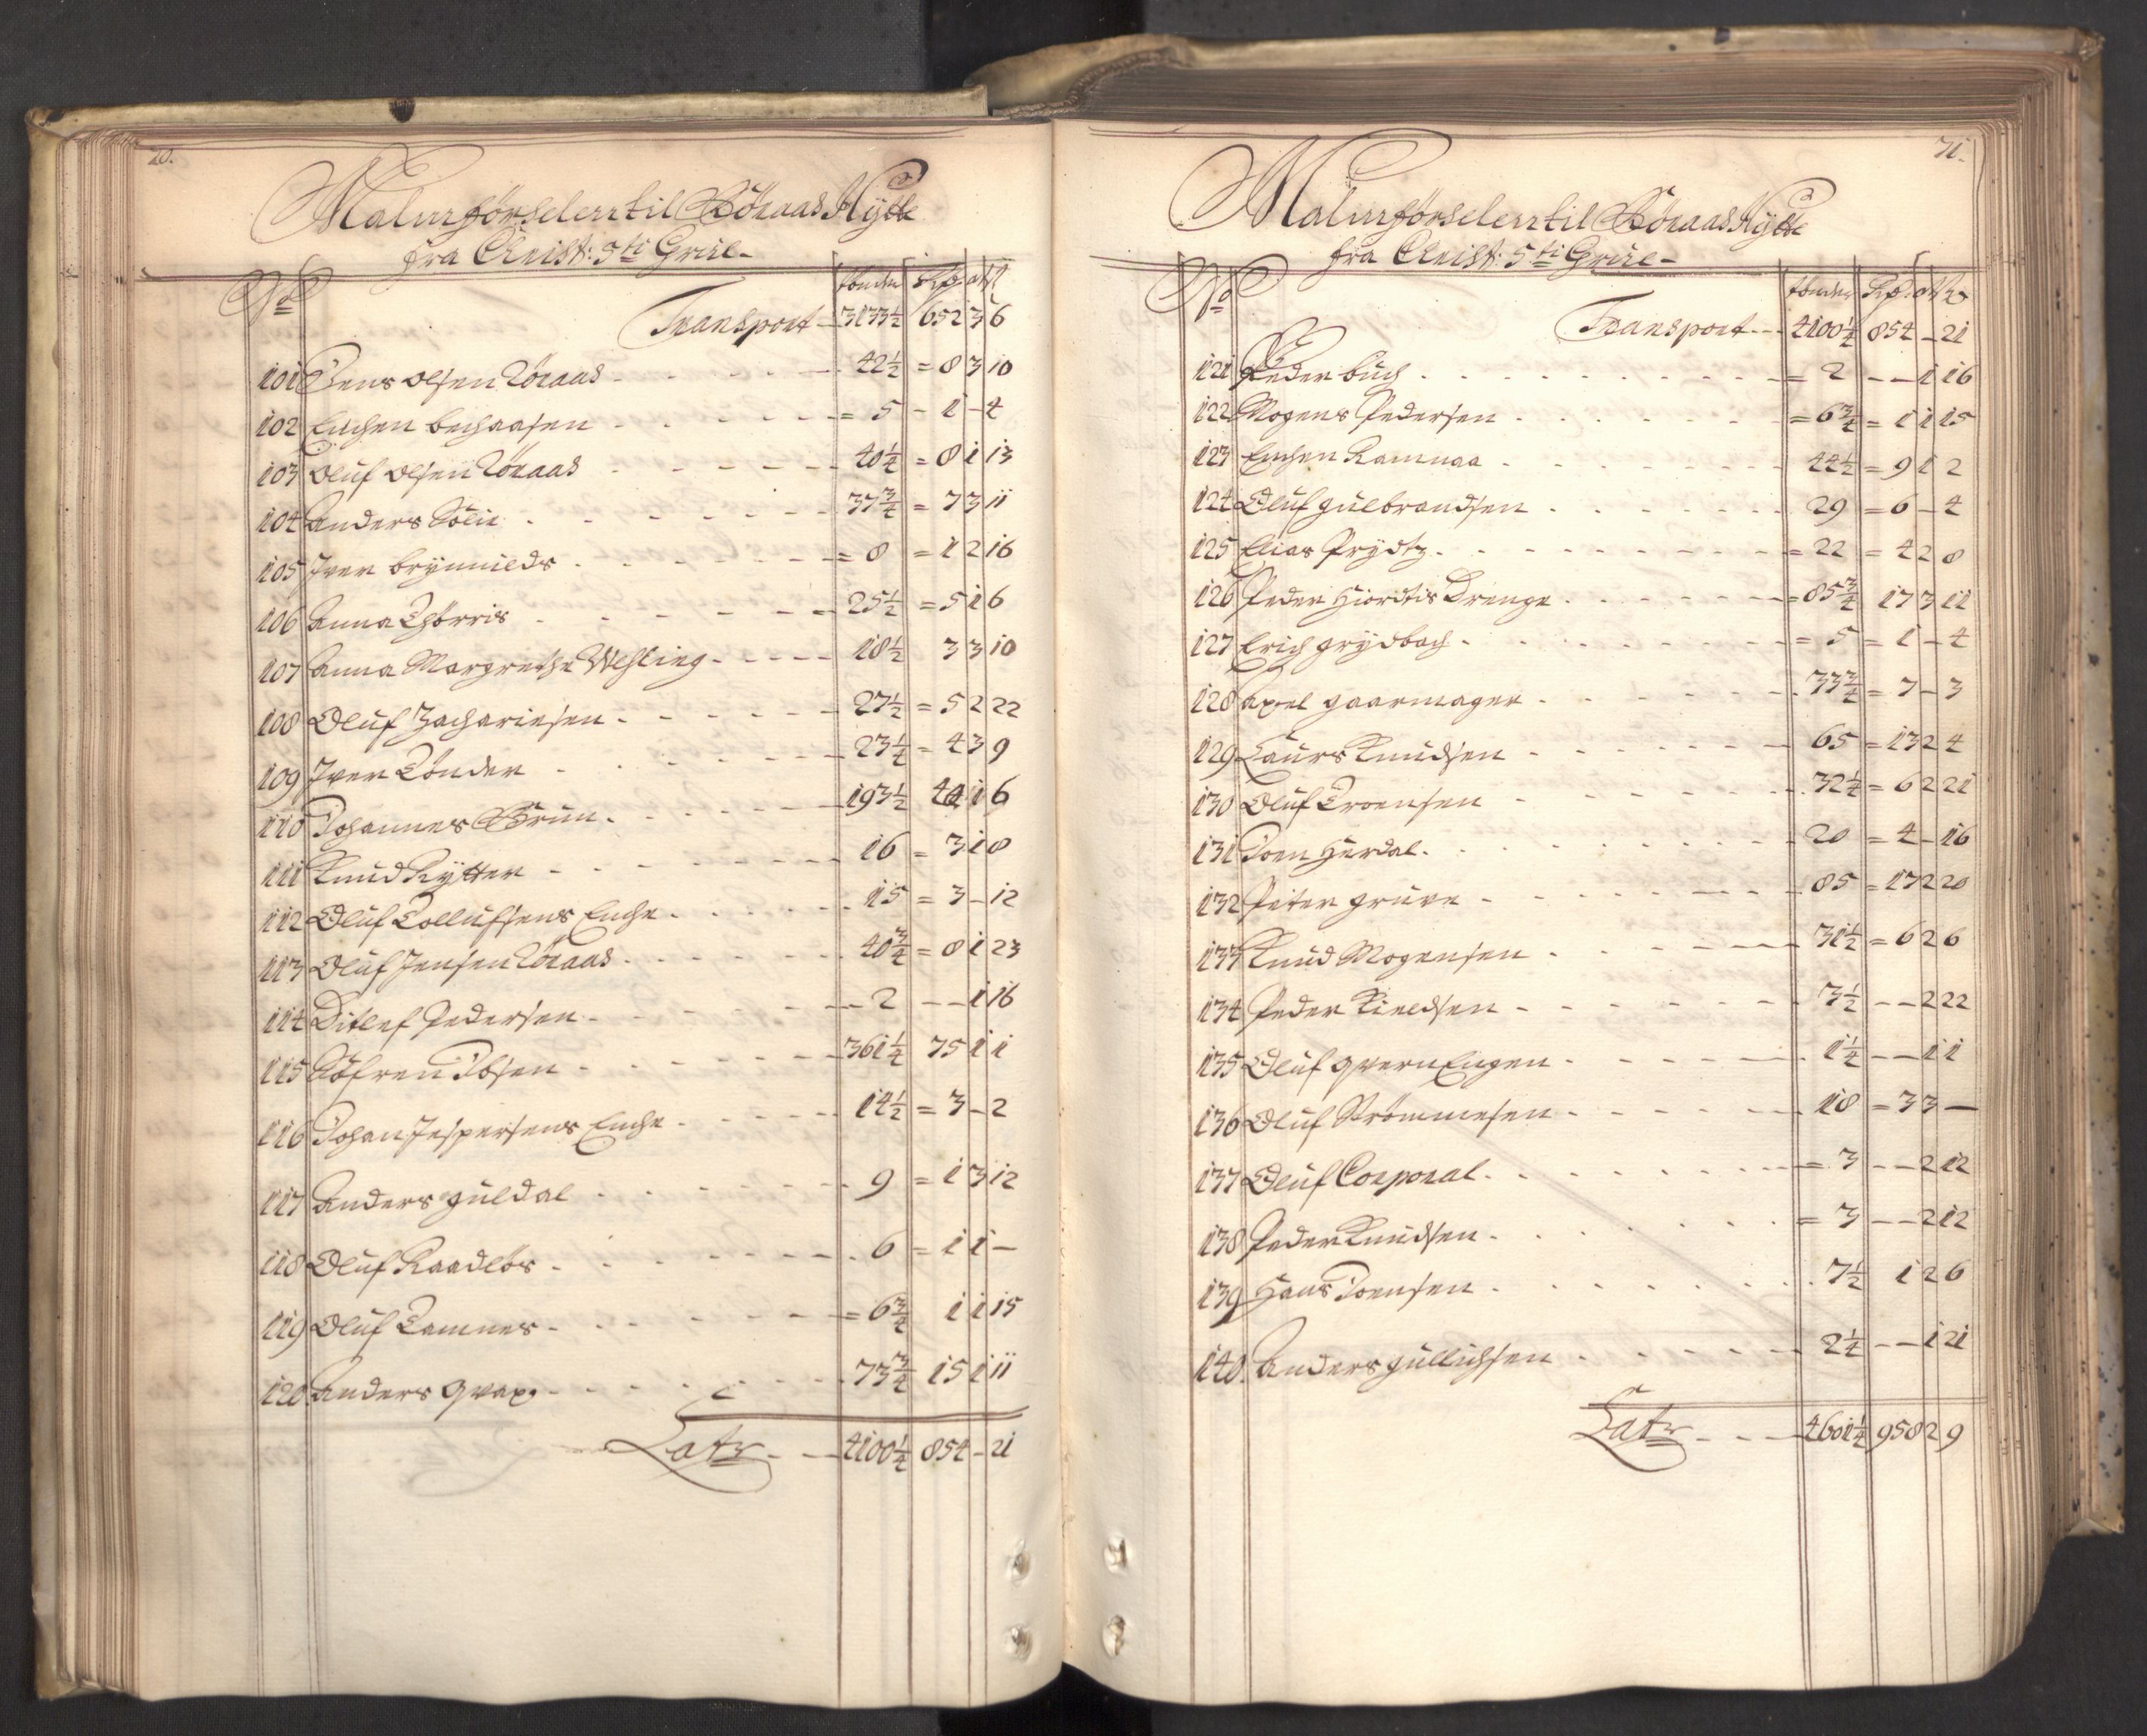 70.
Malmførselen til Røraas Hytte
fra Christ: 5ti Grue
No tønder Rd. ort ß
Transport 3133½ 652 3 6
101 Jens Olsen Röraas 42½ = 8 3 10
102 Enchen bechaasen = 5 - 1 - 4
103 Oluf Olsen Röraas 40¼ = 8 1 13
104 Anders Sölie 37¾ = 7 3 11
105 Iver brynnilds = 8 = 1 2 16
106 Anna Thørris 25½ = 5 1 6
107 Anna Margrethe Wesling 18½ 3 3 10
108 Oluf Zachariesen 27½ = 5 2 22
109 Iver Tönder 23¼ = 4 3 9
110 Johannes Bruun 193½ 40 1 6
111 Knud Rytter 16 = 3 1 8
112 Oluf Tollufsens Enche 15 = 3 - 12
113 Oluf Jensen Röraas 40¾ = 8 1 23
114 Ditlef Pedersen 2 - - 1 16
115 Söfren Ibsen 361¼ 75 1 1
116 Johan Jespersens Enche 14½ = 3 - 2
117 Anders guldal 9 = 1 3 12
118 Oluf Raadlös 6 = 1 1 -
119 Oluf Tamnes = 6¾ 1 1 15
120 Anders qvap 73¾ 15 1 11
Latr 4100¼ 854 - 21
71.
Malmførselen til Røraas Hytte
fra Christ: 5ti Grue
No tønder Rd. ort ß
Transport 4100¼ 854 - 21
121 Peder buch = 2 - - 1 16
122 Mogens Pedersen = 6¾ = 1 1 15
123 Enchen Ramnaa 44½ = 9 1 2
124 Oluf gulbrandsen 29 = 6 - 4
125 Elias Prydtz = 22 = 4 2 8
126 Peder Hiordtis Drenge = 85¾ 17 3 11
127 Erich grydbach = 5 = 1 - 4
128 Axel gaarmager 33¾ = 7 - 3
129 Laurs Knudsen 65 = 13 2 4
130 Oluf Troensen 32¼ = 6 2 21
131 Joen Hurdal 20 = 4 - 16
132 Peter gruve 85 = 17 2 20
133 Knud Mogensen 31½ = 6 2 6
134 Peder Kieldsen 3½ - - 2 22
135 Oluf qvernEngen 1¼ - - 1 1
136 Oluf Strömmesen 18 = 3 3 -
137 Oluf Corporal = 3 - - 2 12
138 Peder Knudsen = 3 - - 2 12
139 Hans Joensen 7½ 1 2 6
140 Anders gullichsen 2¼ - - 1 21
Latr 4601¼ 958 2 9